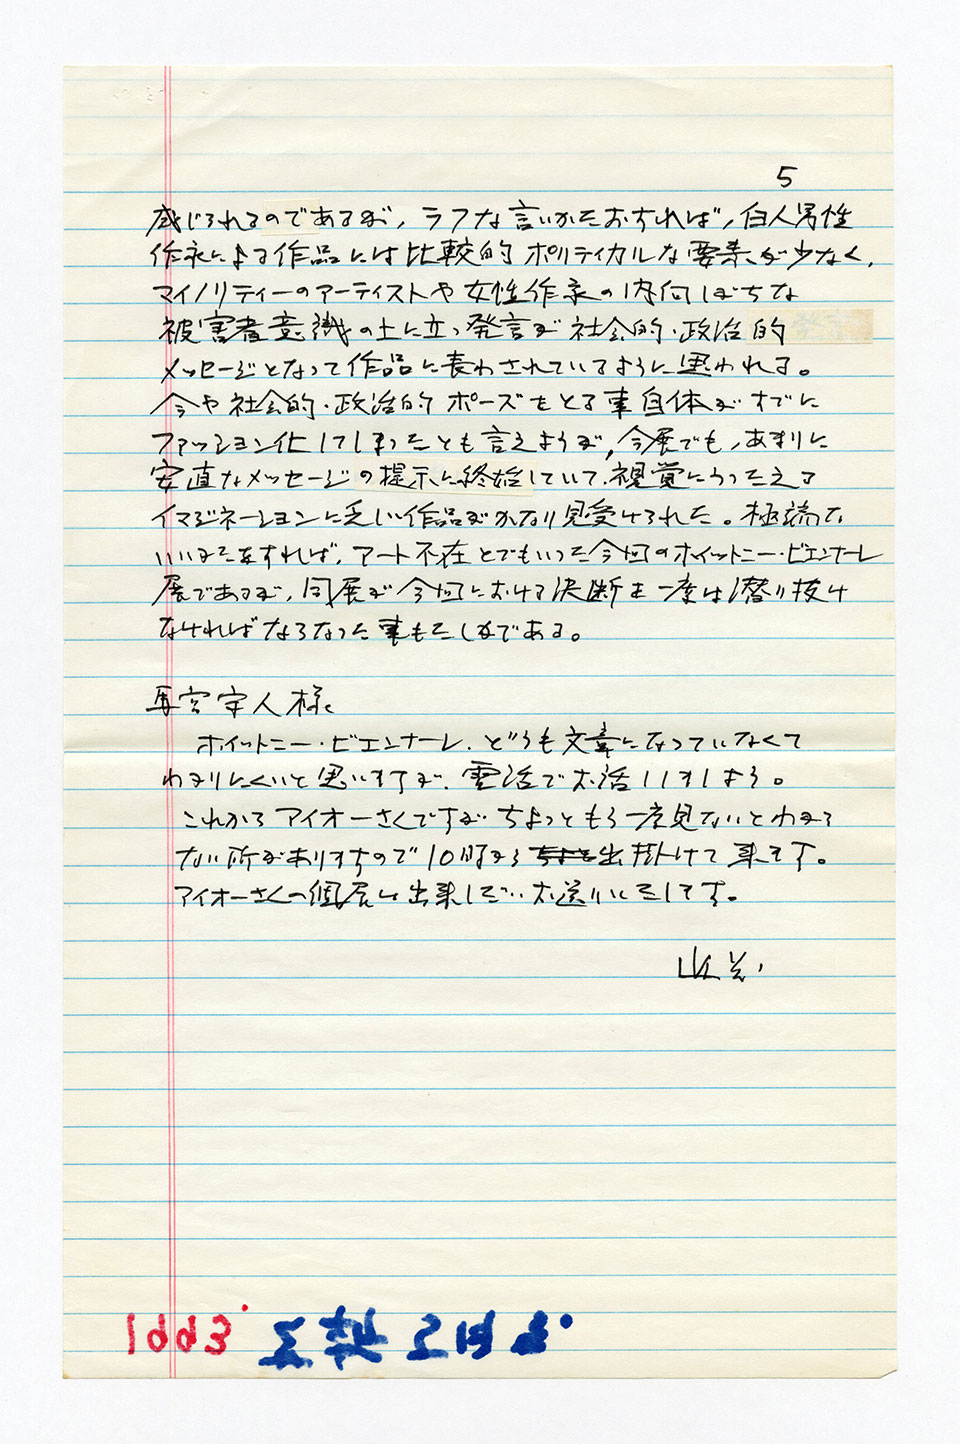 5
感じられるのであるが，ラフな言いかたおすれば，白人男性
作家による作品には比較的ポリティカルな要素が少なく，
マイノリティーのアーティストや女性作家の内向しがちな
被害者意識の上に立つ発言が社会的・政治的
メッセージとなって作品に表わされているように思われる。
今や社会的・政治的ポーズをとる事自体がすでに
ファッション化してしまったとも言えようが，今展でも，あまりに
安直なメッセージの提示に終始していて，視覚にうったえる
イマジネーションに乏しい作品がかなり見受けられた。極端な
いいかたをすれば，アート不在とでもいった今回のホイットニー・ビエンナーレ
展であるが，同展が今回における決断を一度は潜り抜け
なければならなかった事もたしかである。
馬宮守人様
ホイットニー・ビエンナーレ．どうも文章になっていなくて
わかりにくいと思いますが，電話でお話ししましょう。
これから アイオーさんですが ちょっともう一度見ないとわから
ない所がありますので10時から 出掛けて来ます。
アイオーさんの個展は出来しだいお送りいたします。
1993.